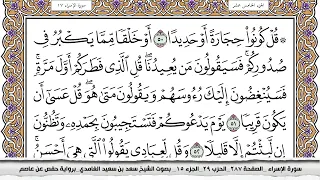 الجزء الخامس عشر
سورة الإسراء ١٧
۞ قُلْ كُونُوا۟ حِجَارَةً أَوْ حَدِيدًا ٥٠ أَوْ خَلْقًا مِّمَّا يَكْبُرُ فِى
صُدُورِكُمْ ۚ فَسَيَقُولُونَ مَن يُعِيدُنَا ۖ قُلِ ٱلَّذِى فَطَرَكُمْ أَوَّلَ مَرَّةٍ ۚ
فَسَيُنْغِضُونَ إِلَيْكَ رُءُوسَهُمْ وَيَقُولُونَ مَتَىٰ هُوَ ۖ قُلْ عَسَىٰٓ أَن
يَكُونَ قَرِيبًا ٥١ يَوْمَ يَدْعُوكُمْ فَتَسْتَجِيبُونَ بِحَمْدِهِۦ وَتَظُنُّونَ
إِن لَّبِثْتُمْ إِلَّا قَلِيلًا ٥٢ وَقُل لِّعِبَادِى يَقُولُوا۟ ٱلَّتِى هِىَ أَحْسَنُ ۚ
سورة الإسراء - الصفحة ٢٨٧ الحزب ٢٩ الجزء ١٥ بصوت الشيخ سعد بن سعيد الغامدي برواية حفص عن عاصم